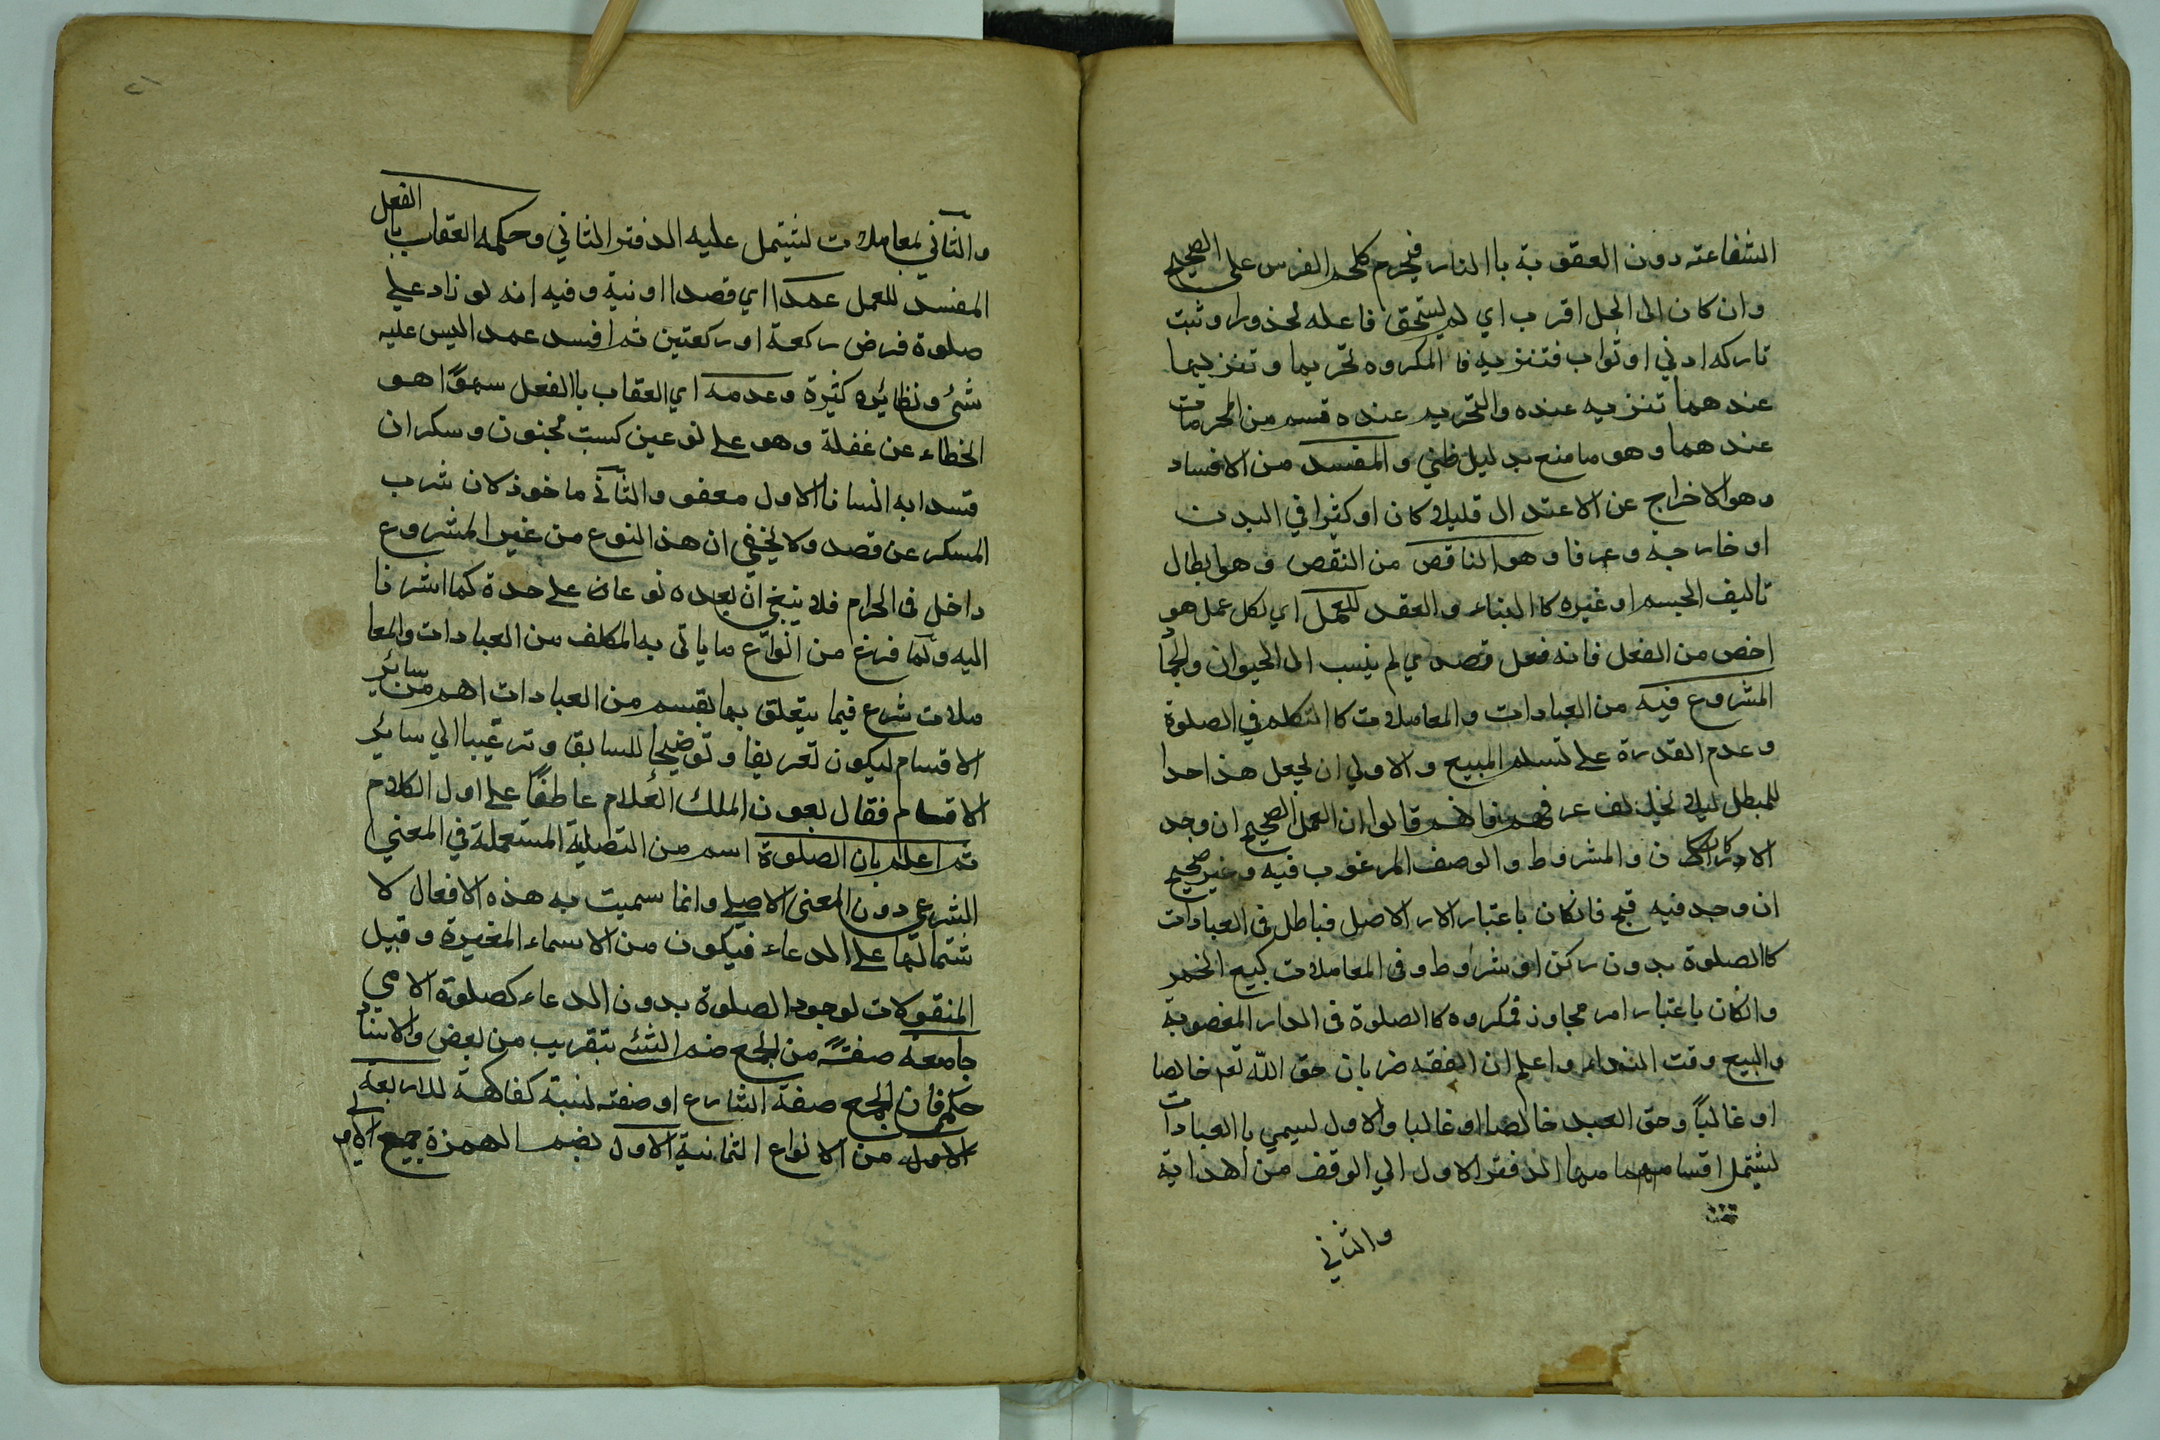 الشفاعته دون العقوبة باالنار فيحرم كلحم الفرس على الصحيح
وان كان الى الحل اقرب اي لم يستحق فاعله محذورا وثبت
تاركه ادني اوثواب فتنزيه فا المكروه تحريما وتنزيها
عندهما تنزيه عنده والتحريم عنده قسم من المحرمات
عندهما وهو ما منع بدليل ظني والمفسد من الافساد
وهو الاخراج عن الاعتدال قليلا كان اوكثيرا في البدن
اوخارجه وعرفا وهو الناقص من النقص وهو ابطال
تاليف الجسم اوغيره كا البناء والعقد للعمل اي لكل عمل هو
اخص من الفعل فانه فعل قصدي لم ينسب الى الحيوان والجما
المشروع فيه من العبادات والمعاملات كا التكلم في الصلوة
وعدم القدرة على تسلم المبيع والاولي ان يجعل هذا احدا
للمبطل ليلا يخالف عرفهم فانهم قالوا ان العمل الصحيح ان وجد
الاركان والمشروط والوصف المرغوب فيه وغير صحيح
ان وجد فيه قبح فانكان باعتبار الار الاصل فباطل فى العبادات
كا الصلوة بدون ركن اوشروط وفى المعاملات كبيع الخمر
وانكان باعتبار امر مجاوز فمكروه كا الصلوة فى الدار المغصوبة
والبيع وقت النداء واعلم ان الفقه ضربان حق الله تعم خالصا
اوغالباً وحق العبد خالصا اوغالبا والاول ليسمي باالعبادات
ليشتمل اقسا مهما منها الدفتر الاول الي الوقف من اهداية
والثاني
والثاني بمعاملات ليشتمل عليه الدفتر الثاني وحكمه العقاب باالفعل
المفسد للعمل عمدا اي قصدا اونية وفيه انه لوزاد على
صلوة فرض ركعة اوركعتين ثم افسد عمد اليس عليه
شئ ونظائره كثيرة وعدمه اي العقاب باالفعل سهوًا هو
الخطاء عن غفلة وهو على نوعين كسبت مجنون وسكران
قسدابه انسانا الاول معفو والثاني ماخوذ لان شرب
المسكر عن قصد ولا يخفي ان هذ النوع من غير المشروع
داخل فى الحرام فلا ينبغي ان يعده نوعان على حدة كما اشرنا
اليه ولما فرغ من انواع ما ياتى به المكلف من العبادات والمعا
ملات شرع فيما يتعلق بها بقسم من العبادات اهم من سائر
الاقسام ليكون تعريفا وتوضيحا للسابق وترغيبا الي سائر
الاقسام فقال بعون الملك العلام عاطفًا على اول الكلام
ثم اعلم بان الصلوة اسم من التصلية المستعملة في المعني
الشرعي دون المعنى الاصلي وانما سميت به هذه الافعال لا
شتمالها على الدعاء فيكون من الاسماء المغيرة وقيل
المنقولات لوجود الصلوة بدون الدعاء كصلوة الامي
جامعة صفة من الجمع ضم الشئ بتقريب من بعض والاسناد
حكمي فان الجمع صفة الشارع اوصفته لنبة كفاهة للاربعة
الاول من الانواع الثمانية الاول بضم الهمزة جميع الاولى